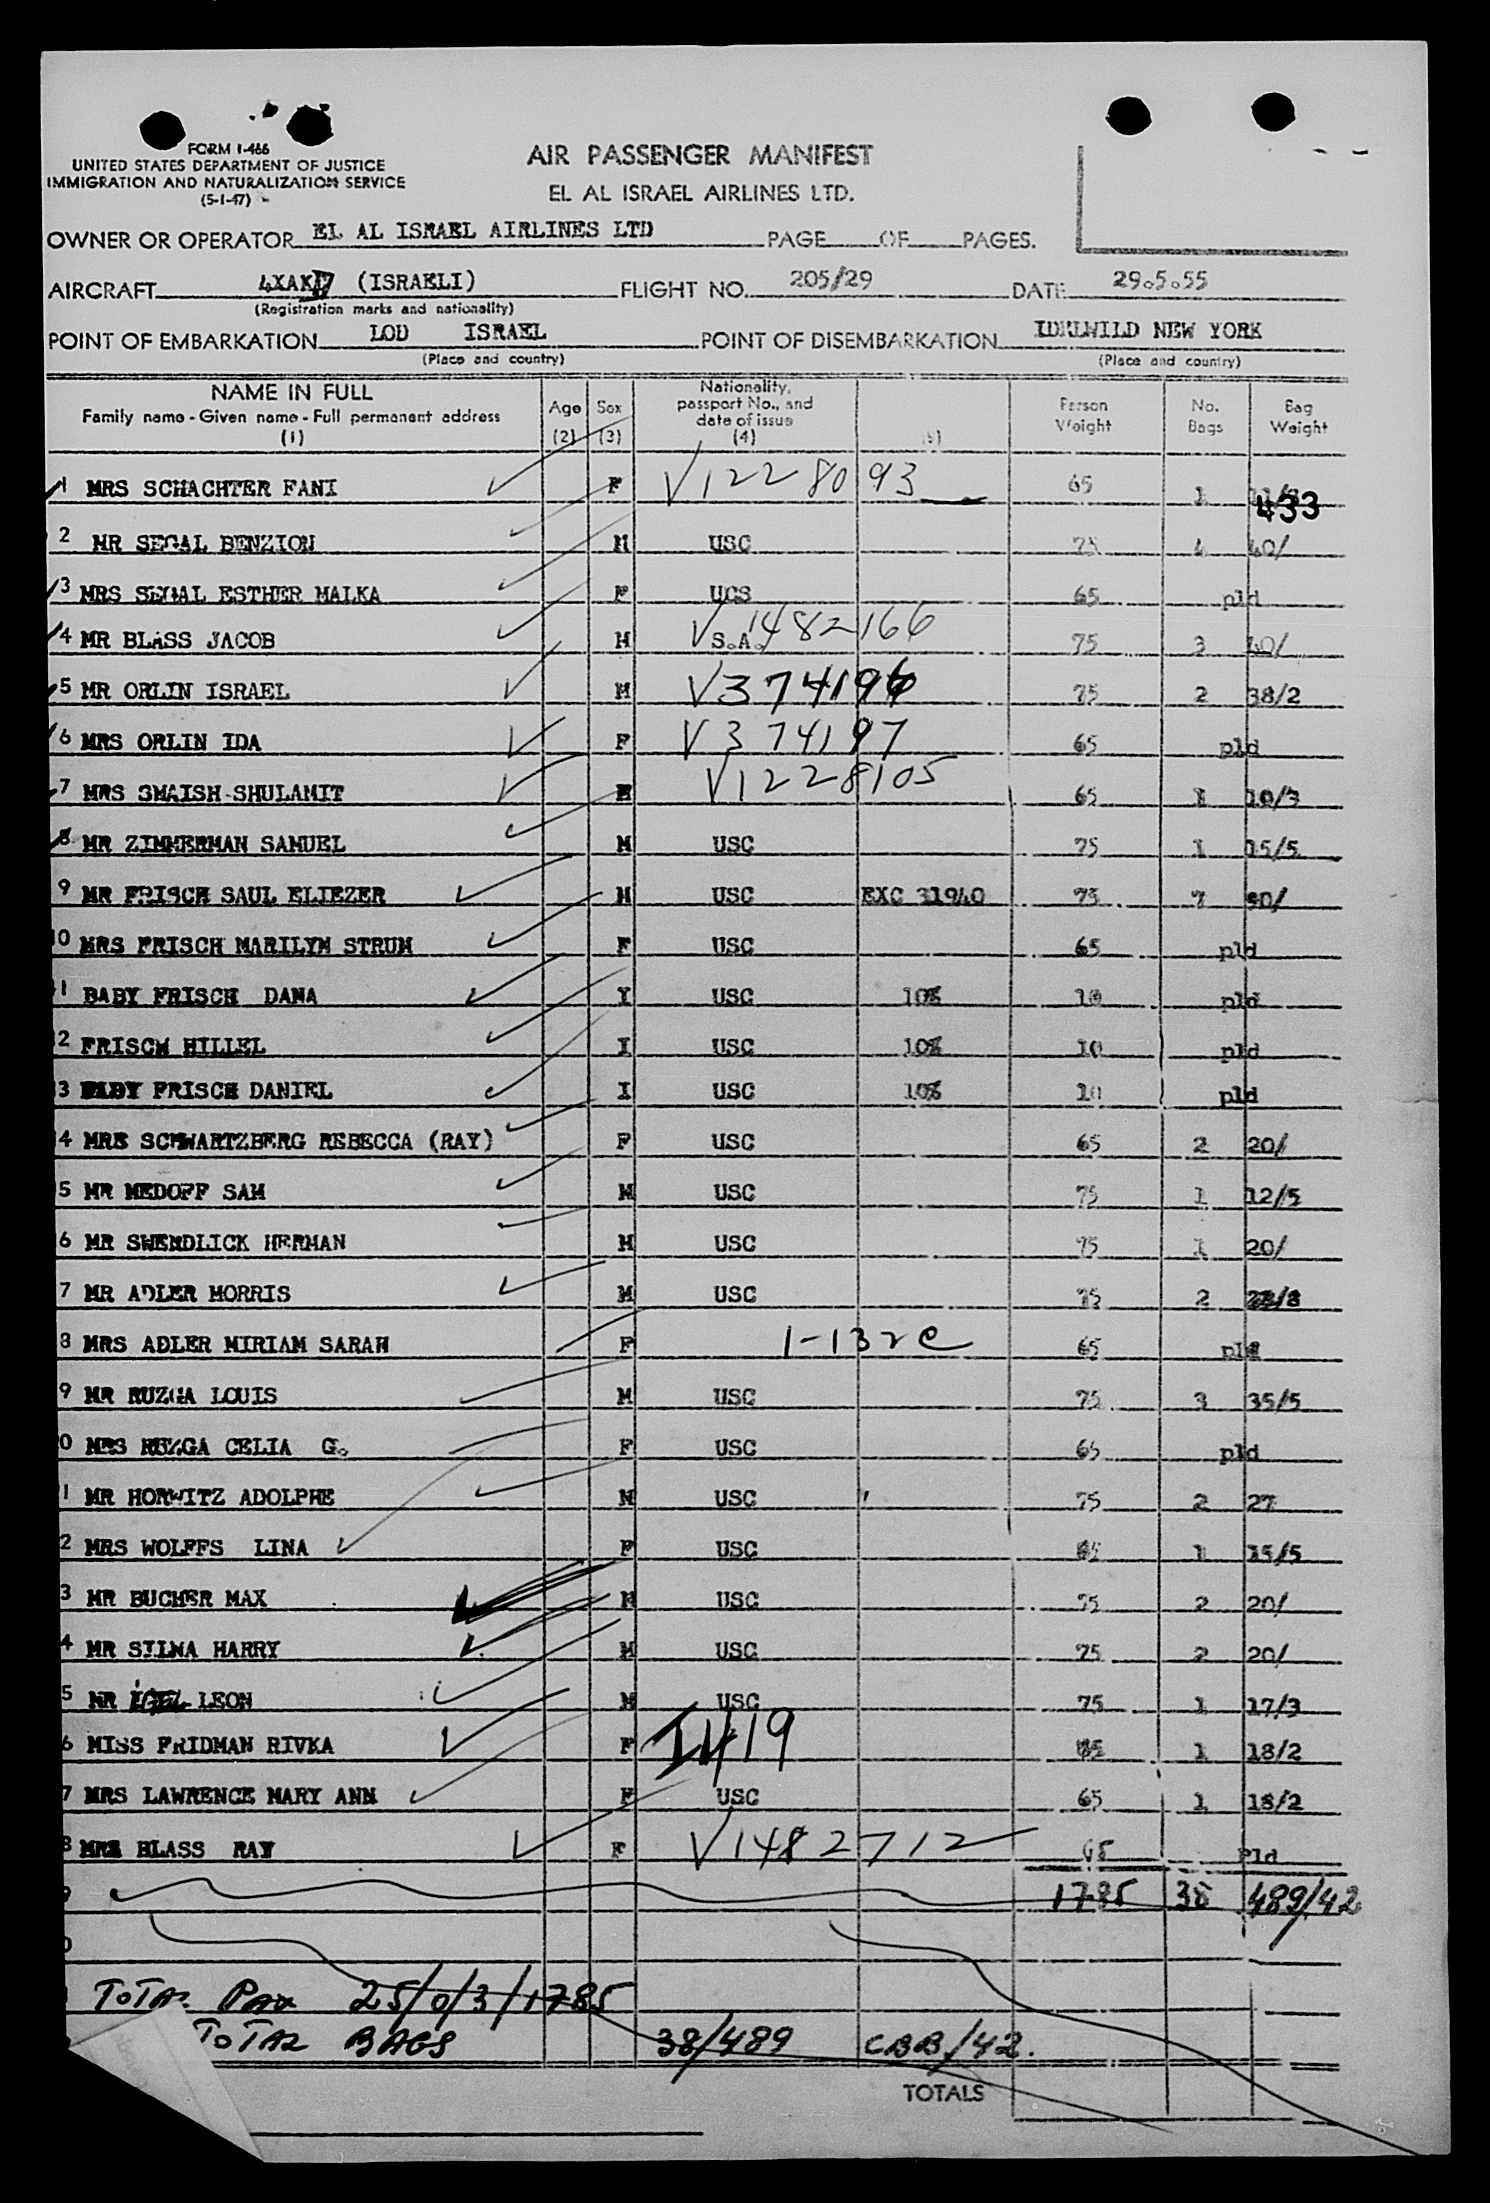 FORM I-466
UNITED STATES DEPARTMENT OF JUSTICE
IMMIGRATION AND NATURALIZATION SERVICE
(5-1-47)
AIR PASSENGER MANIFEST
EL AL ISRAEL AIRLINES LTD.
OWNER OR OPERATOR EL AL ISRAEL AIRLINES LTD PAGE OF PAGES.
AIRCRAFT 4XAK (ISRAELI) FLIGHT NO. 205/29 DATE 29.5.55
(Registration marks and nationality)
POINT OF EMBARKATION LOD ISRAEL POINT OF DISEMBARKATION IDELWILD NEW YORK
(Place and country) (Place and country)
NAME IN FULL Family name - Given name - Full permanent address (1) Age (2) Sex (3) Nationality, passport No., and date of issue (4) (5) Person Weight No. Bags Bag Weight
1 MRS SCHACHTER FANI F V1228093 65 1 433
2 MR SEGAL BENZION M USC 75 40/
3 MRS SEGAL ESTHER MALKA F UCS 65 pld
4 MR BLASS JACOB M S.A. V1482166 75 3 40/
5 MR ORLIN ISRAEL M V374196 75 2 38/2
6 MRS ORLIN IDA F V374197 65 pld
7 MRS SMAISH-SHULAMIT F V1228105 65 1 10/3
8 MR ZIMMERMAN SAMUEL M USC 75 1 15/5
9 MR FRISCH SAUL ELIEZER M USC EXC 31940 75 7 90/
0 MRS FRISCH MARILYM STRUM F USC 65 pld
1 BABY FRISCH DANA I USC 10% 10 pld
2 FRISCH HILLEL I USC 10% 10 pld
3 BABY FRISCH DANIEL I USC 10% 10 pld
4 MRS SCHWARTZBERG REBECCA (RAY) F USC 65 2 20/
5 MR MEDOFF SAM M USC 75 1 12/5
6 MR SWENDLICK HERMAN M USC 75 1 20/
7 MR ADLER MORRIS M USC 75 2
8 MRS ADLER MIRIAM SARAH F 1-132c 65 pld
9 MR RUZGA LOUIS M USC 75 3 35/5
0 MRS RUZGA CELIA G. F USC 65 pld
1 MR HORWITZ ADOLPHE M USC 75 2 27
2 MRS WOLFFS LINA F USC 65 1 15/5
3 MR BUCHER MAX M USC 75 2 20/
4 MR SILMA HARRY M USC 75 2 20/
5 MR IGEL LEON M USC 75 1 17/3
6 MISS FRIDMAN RIVKA F I419 65 1 18/2
7 MRS LAWRENCE MARY ANN F USC 65 1 18/2
8 MRS BLASS RAY F V1482712 65 Pld
9 1785 38 489/42
0
TOTAL PAX 25/0/3/1785
TOTAL BAGS 38/489 CBB/42.
TOTALS